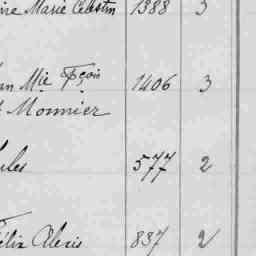 Marie Celestin 1388 3
Mie Fçois 1406 3
Monnier
577 2
Félix Alexis 837 2